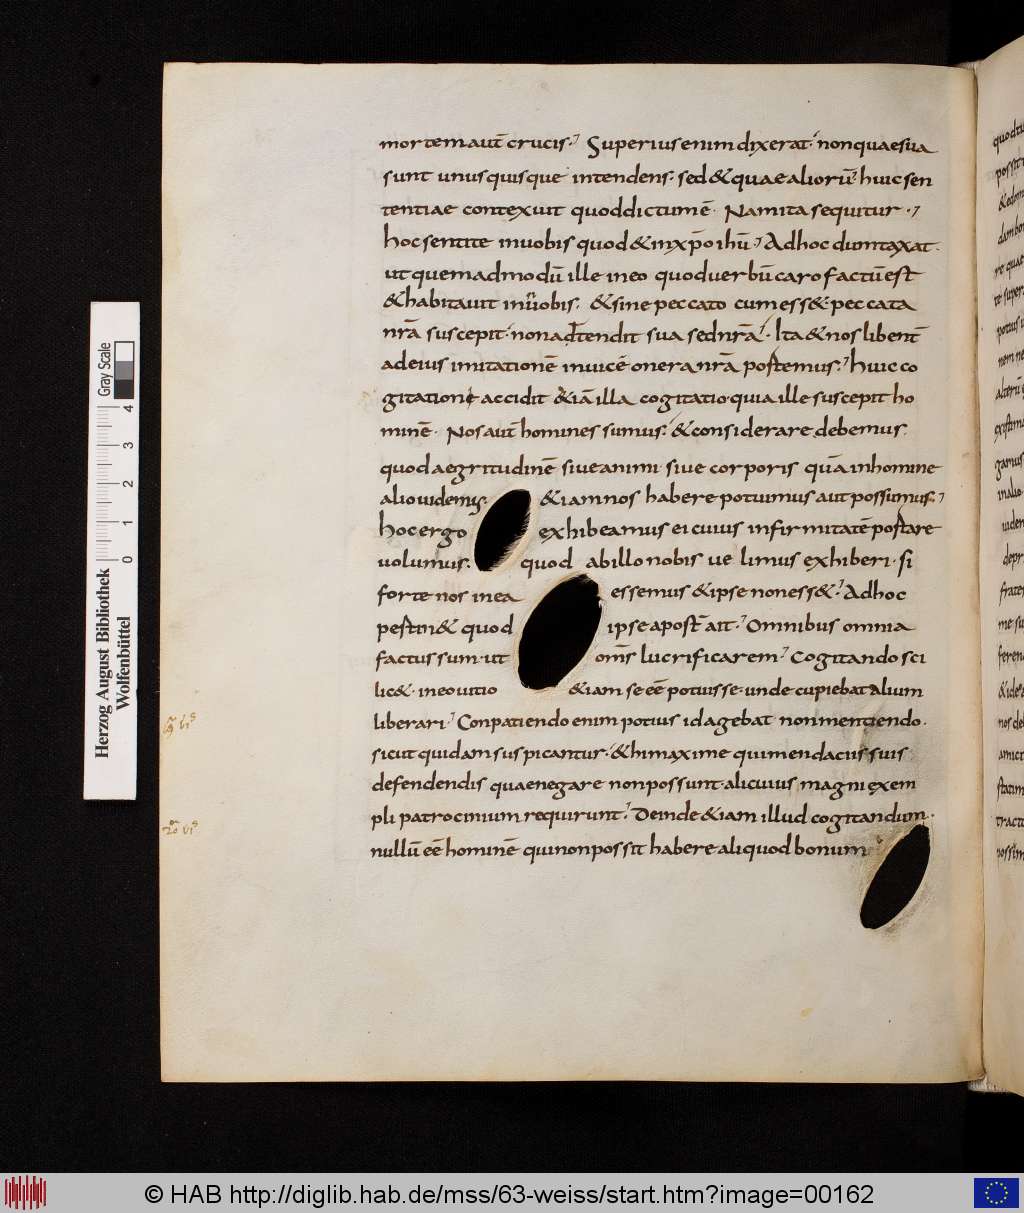 mortem aut̄ crucis. Superius enim dixerat. non quae sua
sunt unusquisque intendens. sed & quae alioru̅. huic sen
tentiae contexuit quod dictum ē. Nam ita sequitur.
hoc sentite in uobis quod & in xp̄o ihū. Ad hoc dumtaxat.
ut quemadmodū ille in eo quod uerbū caro factū est
& habitauit in uobis. & sine peccato cum ess& peccata
nr̄a suscepit. non adtendit sua sed nr̄a. Ita & nos libent̄
ad eius imitationē inuicē onera nr̄a portemus. huic co
gitationi accidit & iā illa cogitatio quia ille suscepit ho
minē. Nos aut̄ homines sumus. & considerare debemus.
quod aegritudinē siue animi siue corporis quā in homine
alio uidemus. & iam nos habere potuimus aut possumus.
hoc ergo exhibeamus ei cuius infirmitatē portare
uolumus. quod ab illo nobis uelimus exhiberi. si
forte nos in ea essemus & ipse non ess&. Ad hoc
pertin& quod ipse apost̄ ait. Omnibus omnia
factus sum. ut om̄s lucrificarem. Cogitando sci
lic&. in eo uitio & iam se eē potuisse. unde cupiebat alium
liberari. Conpatiendo enim potius id agebat non mentiendo.
sicut quidam suspicantur. & hi maxime qui mendaciis suis
defendendis quae negare non possunt. alicuius magni exem
pli patrocinium requirunt. Deinde & iam illud cogitandum.
nullū eē hominē qui non possit habere aliquod bonum
Herzog August Bibliothek
Wolfenbüttel
0 1 2 3 4
Gray Scale
© HAB http://diglib.hab.de/mss/63-weiss/start.htm?image=00162